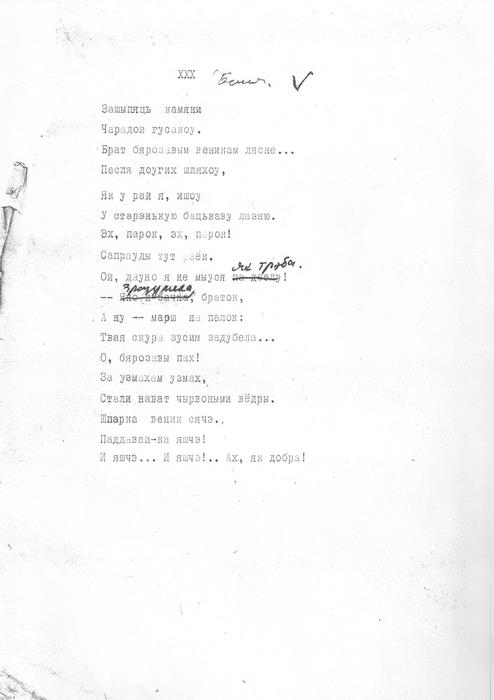 XXX
Зашыпяць камяни
Чарадой гусакоу.
Брат бярозавым веникам лясне...
Пасля доугих шляхоу,
Як у рай я, ишоу
У старэнькую бацькаву лазню.
Эх, парок, эх, парок!
Сапрауды тут раёк.
як трэба.
Ой, дауно я не мыуся па-дзелу!
зразумела,
-- Яно и бачна, браток,
А ну -- марш на палок:
Твая скура зусим задубела...
О, бярозавы пах!
За узмахам узмах,
Стали нават чырвоными вёдры.
Шпарка веник сячэ..
Паддавай-ка яшчэ!
И яшчэ... И яшчэ!.. Ах, як добра!